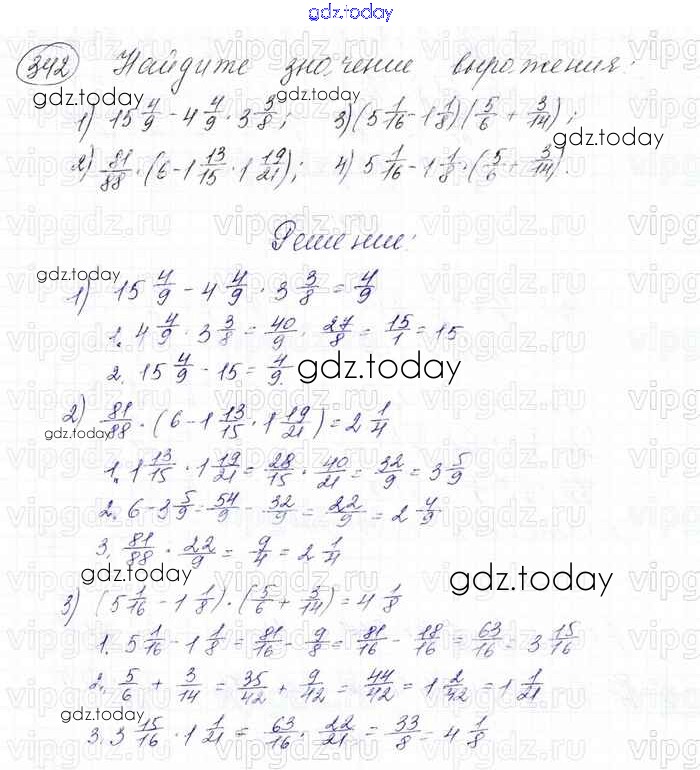 gdz.today
342 Найдите значение выражения:
gdz.today gdz.today
1) 15 4/9 - 4 4/9 · 3 3/8; 3) (5 1/16 - 1 1/8) (5/6 + 3/14);
gdz.today
2) 81/88 · (6 - 1 13/15 · 1 19/21); 4) 5 1/16 - 1 1/8 · (5/6 + 3/14).
gdz.today
Решение:
gdz.today
1) 15 4/9 - 4 4/9 · 3 3/8 = 4/9
1. 4 4/9 · 3 3/8 = 40/9 · 27/8 = 15/1 = 15
2. 15 4/9 - 15 = 4/9
gdz.today
2) 81/88 · (6 - 1 13/15 · 1 19/21) = 2 1/4
gdz.today
1. 1 13/15 · 1 19/21 = 28/15 · 40/21 = 32/9 = 3 5/9
2. 6 - 3 5/9 = 54/9 - 32/9 = 22/9 = 2 4/9
3. 81/88 · 22/9 = 9/4 = 2 1/4
gdz.today gdz.today
3) (5 1/16 - 1 1/8) · (5/6 + 3/14) = 4 1/8
1. 5 1/16 - 1 1/8 = 81/16 - 9/8 = 81/16 - 18/16 = 63/16 = 3 15/16
2. 5/6 + 3/14 = 35/42 + 9/42 = 44/42 = 1 2/42 = 1 1/21
gdz.today
3. 3 15/16 · 1 1/21 = 63/16 · 22/21 = 33/8 = 4 1/8
gdz.today